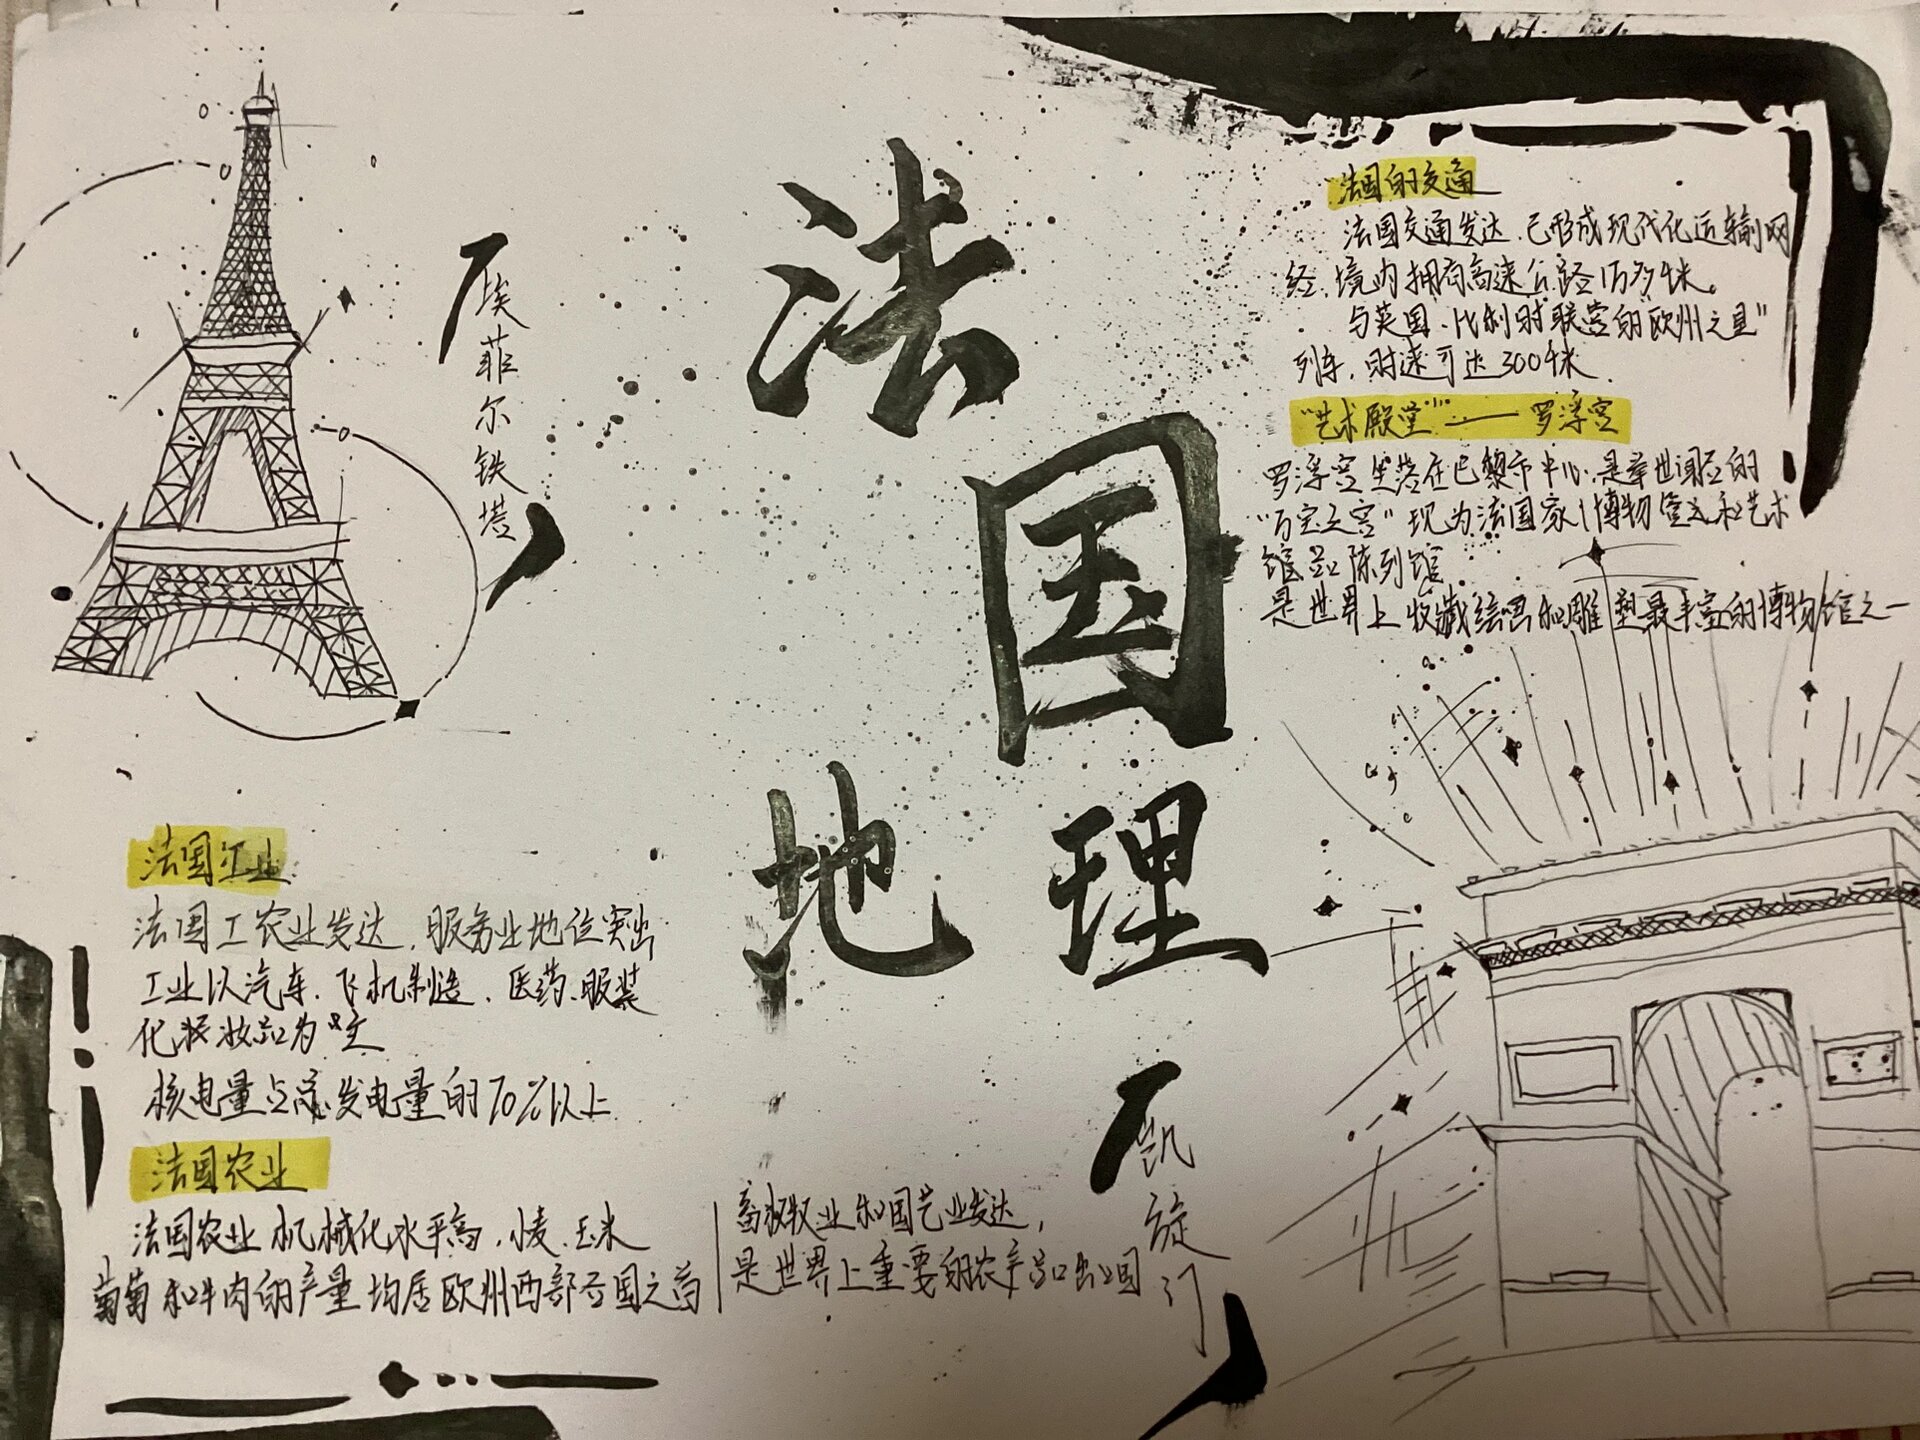 法国地理
埃菲尔铁塔
法国的交通
法国交通发达、已形成现代化运输网
经、境内拥有高速公路1万多千米。
与英国、比利时联营的欧州之星"
列车,时速可达300千米.
"艺术殿堂"——罗浮宫
罗浮宫坐落在巴黎市中心.是举世闻名的
"万宝之宫"现为法国家博物馆和艺术
馆品陈列馆
是世界上收藏绘画和雕塑最丰富的博物馆之一
法国工业
法国工农业发达,服务业地位突出
工业以汽车、飞机制造、医药、服装
化妆品为主
核电量占总发电量的70%以上
法国农业
法国农业机械化水平高、小麦、玉米
葡萄和牛肉的产量均居欧州西部各国之首
畜牧业和园艺业发达,
是世界上重要的农产品出口国
凯旋门